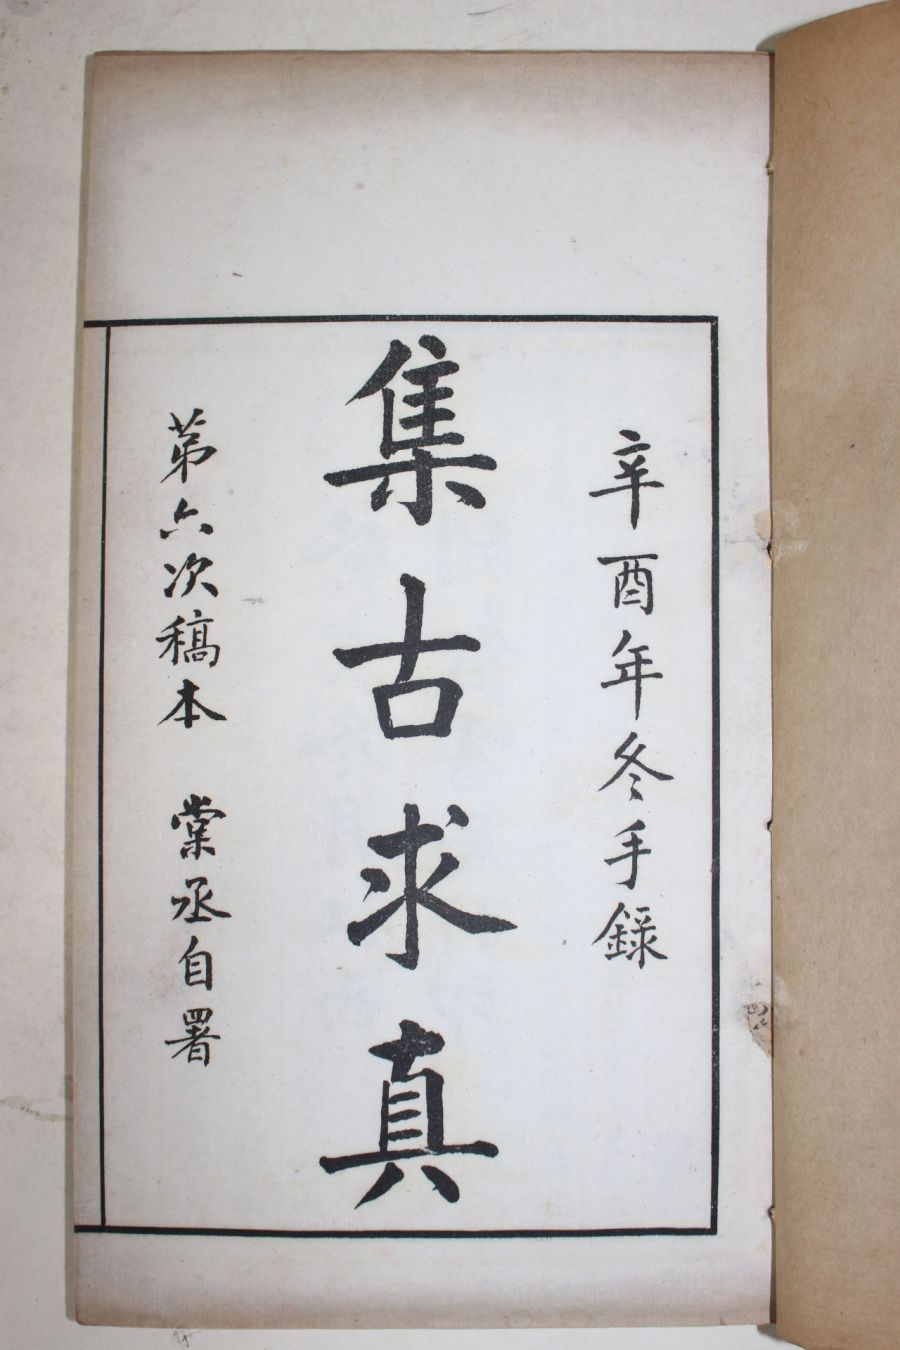 辛酉年冬手錄
集古求真
第六次稿本 棠丞自署